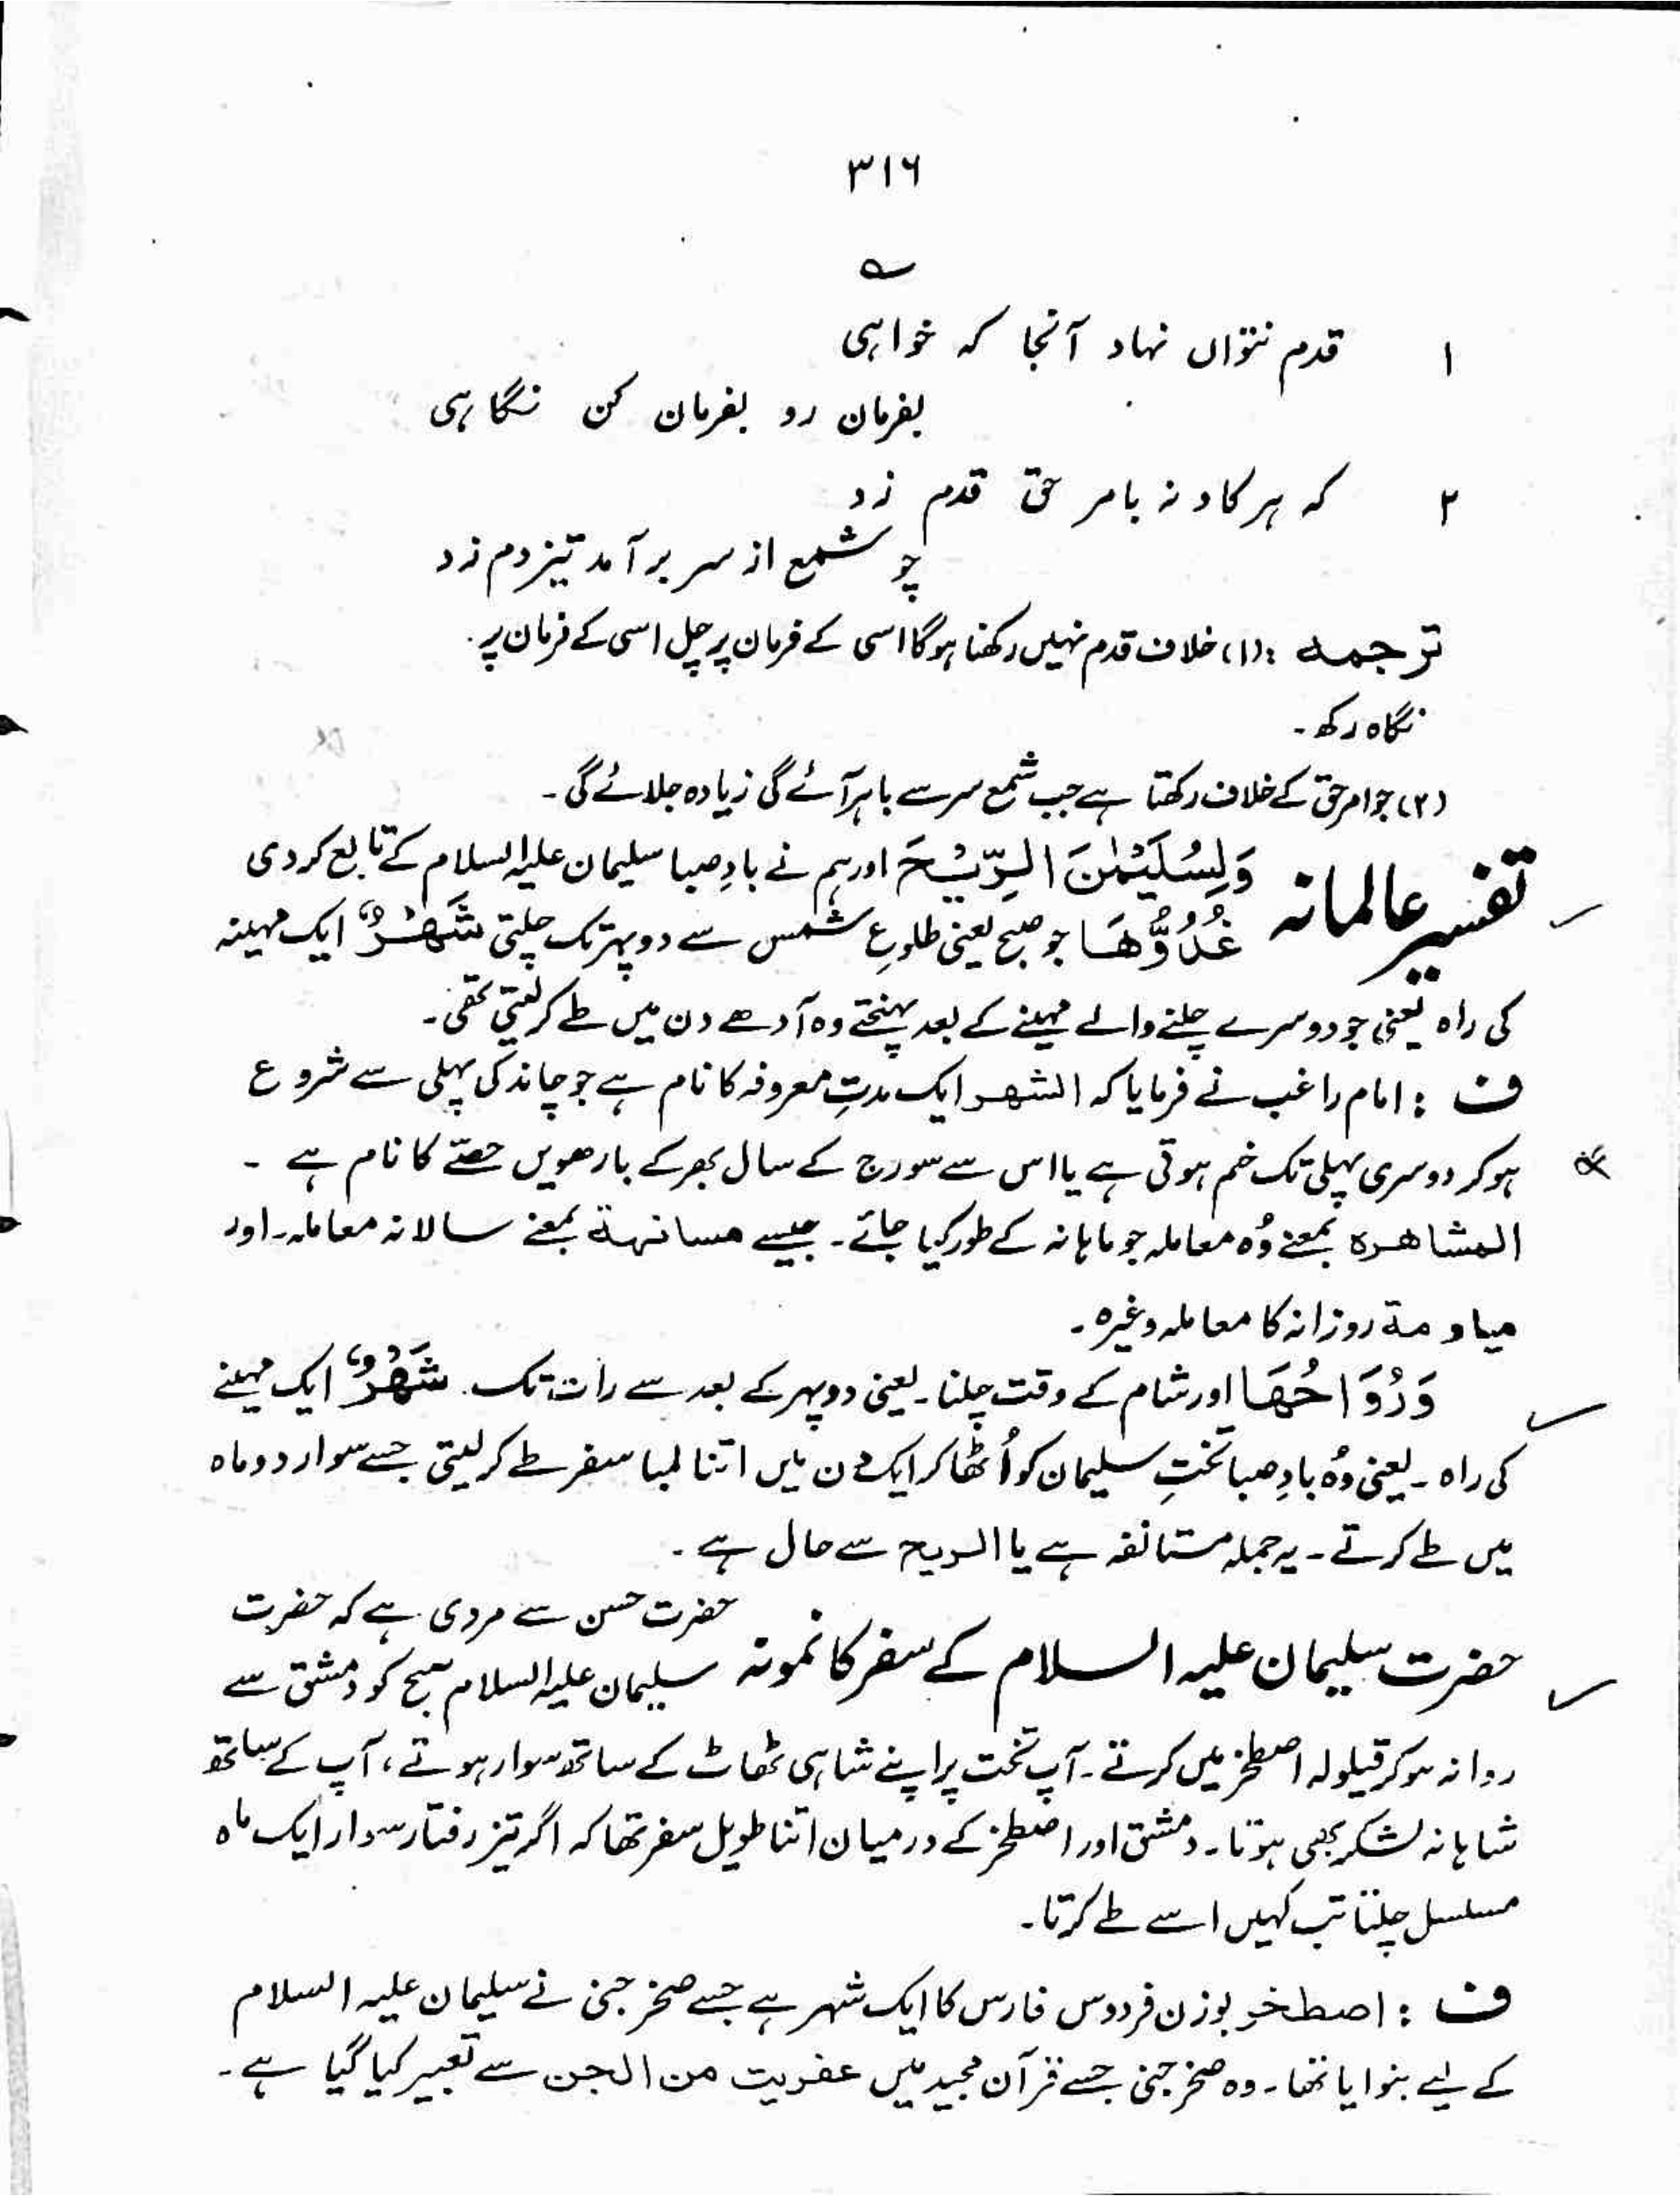 ۳۱۶
؎
۱ قدم نتواں نہاد آنجا کہ خواہی
بفرمان رو بفرمان کن نگاہی
۲ کہ ہر کاد نہ بامر حق قدم زد
چو شمع از سر بر آمد تیز دم زد
ترجمہ : (۱) خلاف قدم نہیں رکھنا ہوگا اسی کے فرمان پر چل اسی کے فرمان پر
نگاہ رکھ ۔
(۲) جو امر حق کے خلاف رکھتا ہے جب شمع سر سے باہر آئے گی زیادہ جلائے گی ۔
تفسیر عالمانہ وَلِسُلَیْمٰنَ الرِّیْحَ اور ہم نے بادِ صبا سلیمان علیہ السلام کے تابع کر دی
غُدُوُّھَا جو صبح یعنی طلوعِ شمس سے دوپہر تک چلتی شَھْرٌ ایک مہینہ
کی راہ یعنی جو دوسرے چلنے والے مہینے کے بعد پہنچتے وہ آدھے دن میں طے کر لیتی تھی ۔
ف : امام راغب نے فرمایا کہ الشھر ایک مدتِ معروفہ کا نام ہے جو چاند کی پہلی سے شروع
ہو کر دوسری پہلی تک ختم ہوتی ہے یا اس سے سورج کے سال بھر کے بارھویں حصّے کا نام ہے ۔
المشاھرہ بمعنے وُہ معاملہ جو ماہانہ کے طور کیا جائے ۔ جیسے مسانھة بمعنے سالانہ معاملہ ۔ اور
میاومة روزانہ کا معاملہ وغیرہ ۔
وَرُوَاحُھَا اور شام کے وقت چلنا ۔ یعنی دوپہر کے بعد سے رات تک ۔ شَھْرٌ ایک مہینے
کی راہ ۔ یعنی وُہ بادِ صبا تختِ سلیمان کو اُٹھا کر ایک دن میں اتنا لمبا سفر طے کر لیتی جسے سوار دو ماہ
میں طے کرتے ۔ یہ جملہ مستانفہ ہے یا الریح سے حال ہے ۔
حضرت سلیمان علیہ السلام کے سفر کا نمونہ حضرت حسن سے مروی ہے کہ حضرت
سلیمان علیہ السلام صبح کو دمشق سے
روانہ ہو کر قیلولہ اصطخر میں کرتے ۔ آپ تخت پر اپنے شاہی ٹھاٹ کے ساتھ سوار ہوتے ، آپ کے ساتھ
شاہانہ لشکر بھی ہوتا ۔ دمشق اور اصطخر کے درمیان اتنا طویل سفر تھا کہ اگر تیز رفتار سوار ایک ماہ
مسلسل چلتا تب کہیں اسے طے کرتا ۔
ف : اصطخر بوزن فردوس فارس کا ایک شہر ہے جسے صخر جنی نے سلیمان علیہ السلام
کے لیے بنوایا تھا ۔ وہ صخر جنی جسے قرآن مجید میں عفریت من الجن سے تعبیر کیا گیا ہے ۔